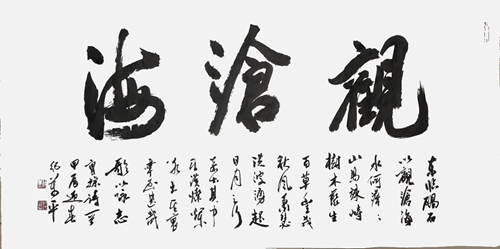 觀滄海
東臨碣石
以觀滄海
水何澹〻
山島竦峙
樹木叢生
百草豐茂
秋風蕭瑟
洪波湧起
日月之行
若出其中
星漢燦爛
若出其裏
幸甚至哉
歌以詠志